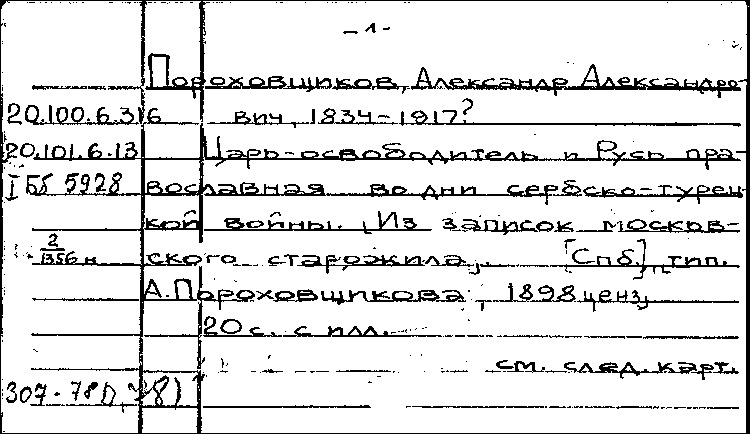 - 1 -
Пороховщиков, Александр Александро-
20.100.6.316 вич, 1834-1917?
20.101.6.13 Царь-освободитель и Русь пра-
I Бб 5928 вославная во дни сербско-турец-
кой войны. Из записок москов-
2/1356 н ского старожила. [Спб.], тип.
А. Пороховщикова, 1898 ценз,
20 с. с илл.
см. след. карт.
307-78